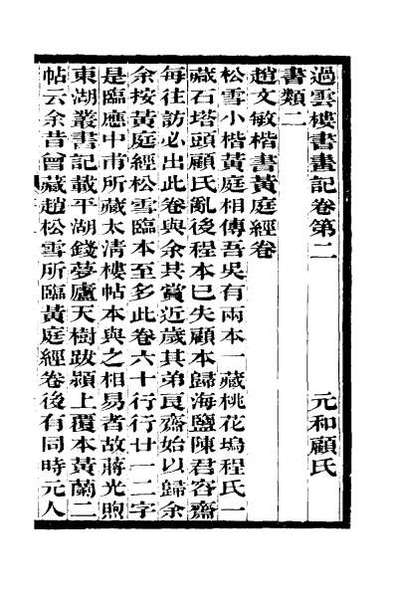 過雲樓書畫記卷第二 元和顧氏
書類二
趙文敏楷書黃庭經卷
松雪小楷黃庭相傳吾吳有兩本一藏桃花塢程氏一
藏石塔頭顧氏亂後程本已失顧本歸海鹽陳君容齋
每往訪必出此卷與余共賞近歲其弟良齋始以歸余
余按黃庭經松雪臨本至多此卷六十行行廿一二字
是臨應中甫所藏太清樓帖本與之相易者故蔣光煦
東湖叢書記載平湖錢夢廬天樹跋潁上覆本黃蘭二
帖云余昔曾藏趙松雪所臨黃庭經卷後有同時元人